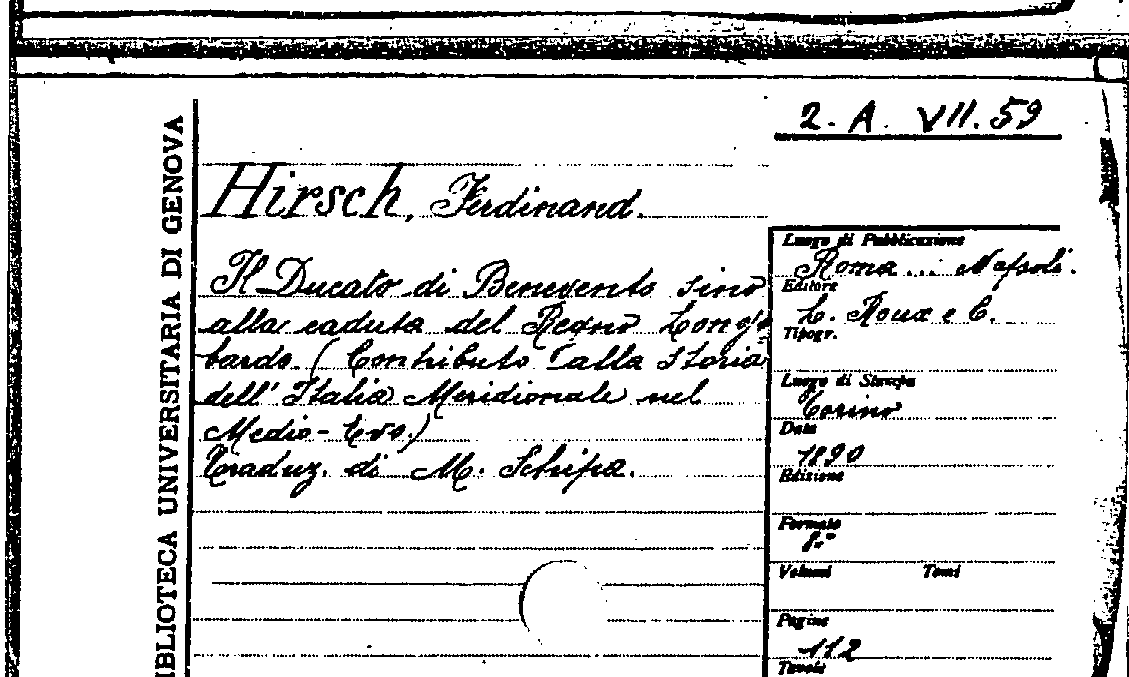 2. A. VII. 59
BIBLIOTECA UNIVERSITARIA DI GENOVA
Hirsch, Ferdinand.
Il Ducato di Benevento sino
alla caduta del Regno Longo-
bardo. (Contributo alla Storia
dell' Italia Meridionale nel
Medio-Evo.)
Traduz. di M. Schipa.
Luogo di Pubblicazione
Roma... Napoli.
Editore
L. Roux e C.
Tipogr.
Luogo di Stampa
Torino
Data
1890
Edizione
Formato
8°
Volumi Tomi
Pagine
112
Tavole